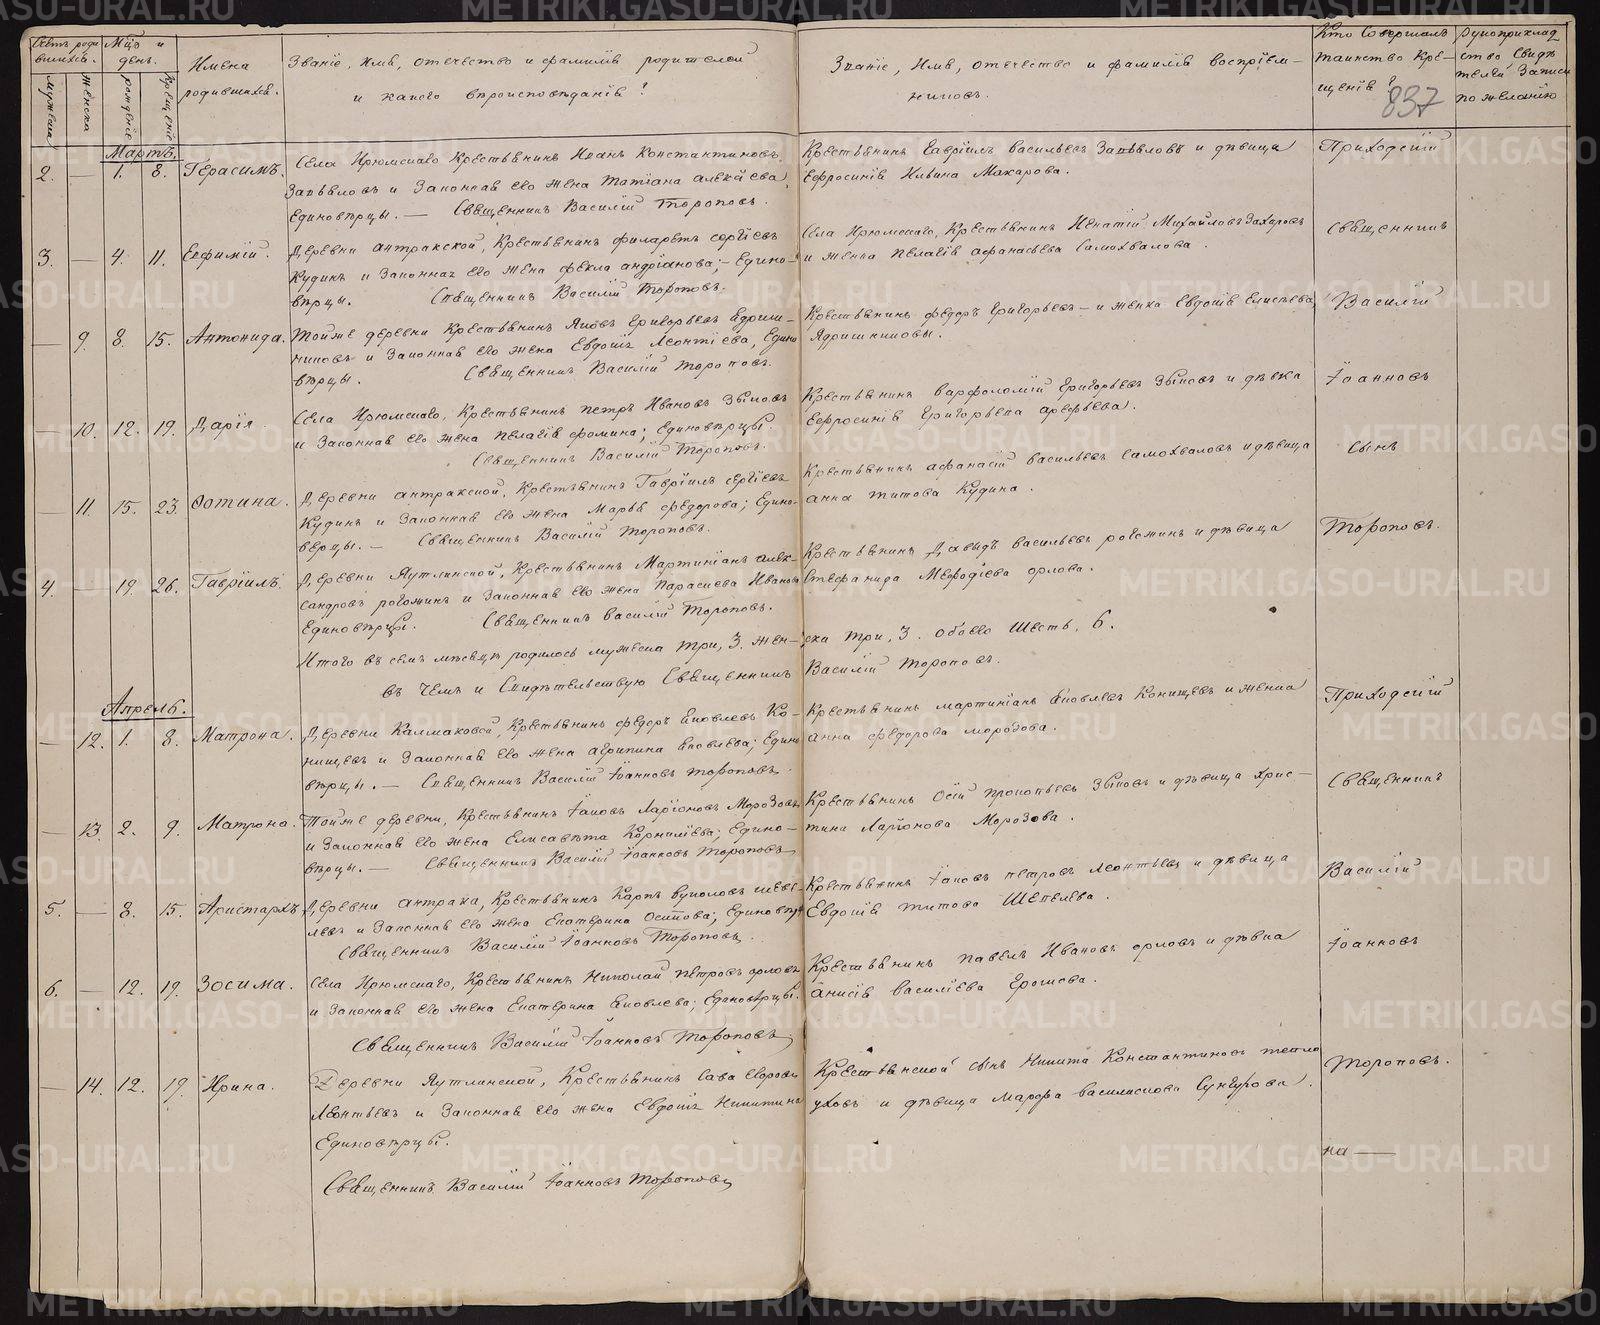 Счетъ роди
вшихся.
Мцъ и
день.
Имена
родившихся.
Званіе, имя, отечество и фамилія родителей
и какого вѣроисповѣданія?
Званіе, Имя, отечество и фамилія воспріем-
никовъ.
Кто Совершалъ
таинство Кре-
щенія?
Рукоприклад
ство Свидѣ
телей Записи
по желанію
мужеска
женска
рожденіе
крещеніе
837
Мартъ.
2. — 1. 8. Герасимъ.
Села Ирюмскаго Крестьянинъ Иванъ Константиновъ
Запьвловъ и Законная его жена Татіана Алексіева,
Единовѣрцы. — Священникъ Василій Тороповъ.
Крестьянинъ Гавріилъ Васильевъ Запьвловъ и дѣвица
Ефросинія Ильина Макарова.
Приходскій
3. — 4. 11. Евфимій.
Деревни Антракской, Крестьянинъ Филаретъ Сергіевъ
Кудинъ и Законная его жена Фекла Андріанова; — Едино-
вѣрцы. Священникъ Василій Тороповъ.
Села Ирюмскаго, Крестьянинъ Игнатій Михайловъ Захаровъ
и женка Пелагія Афанасьева Самохвалова.
Священникъ
— 9. 8. 15. Антонида.
Тойже деревни Крестьянинъ Яковъ Григорьевъ Ядриш-
никовъ и Законная его жена Евдокія Леонтіева, Едино
вѣрцы. Священникъ Василій Тороповъ.
Крестьянинъ Федоръ Григорьевъ — и женка Евдокія Елисѣева
Ядришниковы.
Василій
— 10. 12. 19. Дарія.
Села Ирюмскаго, Крестьянинъ Петръ Ивановъ Зыковъ
и Законная его жена Пелагія Фомина; Единовѣрцы.
Священникъ Василій Тороповъ.
Крестьянинъ Варфоломій Григорьевъ Зыковъ и дѣвка
Ефросинія Григорьева Арефьева.
Іоанновъ
— 11. 15. 23. Фотина.
Деревни Антракской, Крестьянинъ Гавріилъ Сергіевъ
Кудинъ и Законная его жена Марья Федорова; Едино-
верцы. — Священникъ Василій Тороповъ.
Крестьянинъ Афанасій Васильевъ Самохваловъ и дѣвица
Анна Титова Кудина.
Сынъ
4. — 19. 26. Гавріилъ.
Деревни Яутлинской, Крестьянинъ Мартиніанъ Алек-
сандровъ Рогожинъ и Законная его жена Парасковья Иванова
Единовѣрцы. Священникъ Василій Тороповъ.
Крестьянинъ Давыдъ Васильевъ Рогожинъ и дѣвица
Стефанида Мефодіева Орлова.
Тороповъ.
Итого въ семъ мѣсяцѣ родилось мужеска три, 3. жен-
ска три, 3. обоего Шесть. 6.
въ чемъ и Свидѣтельствую Священникъ
Василій Тороповъ.
Апрель.
— 12. 1. 8. Матрона.
Деревни Калмаковой, Крестьянинъ Федоръ Яковлевъ Ко-
нищевъ и Законная его жена Агрипина Яковлева; Едино
вѣрцы. — Священникъ Василій Іоанновъ Тороповъ.
Крестьянинъ Мартиніанъ Яковлевъ Конищевъ и женка
Анна Федорова Морозова.
Приходскій
— 13. 2. 9. Матрона.
Тойже деревни, Крестьянинъ Іаковъ Ларіоновъ Морозовъ
и Законная его жена Елисавѣта Корнилѣева; Едино-
вѣрцы. — Священникъ Василій Іоанновъ Тороповъ.
Крестьянинъ Осій Прокопьевъ Зыковъ и дѣвица Хрис-
тина Ларіонова Морозова.
Священникъ
5. — 8. 15. Аристархъ.
Деревни Антрака, Крестьянинъ Карпъ Вуколовъ Шепе-
левъ и Законная его жена Екатерина Осипова; Единовѣр
Священникъ Василій Іоанновъ Тороповъ.
Крестьянинъ Іаковъ Петровъ Леонтьевъ и дѣвица
Евдокія Титова Шепелева.
Василій
6. — 12. 19. Зосима.
Села Ирюмскаго, Крестьянинъ Николай Петровъ Орловъ
и Законная его жена Екатерина Яковлева; Единовѣрцы.
Священникъ Василій Іоанновъ Тороповъ
Крестьянинъ Павелъ Ивановъ Орловъ и дѣвка
Анисія Василіева Ерошева.
Іоанновъ
— 14. 12. 19. Ирина.
Деревни Яутлинской, Крестьянинъ Сава Егоровъ
Леонтьевъ и Законная его жена Евдокія Никитина
Единовѣрцы.
Священникъ Василій Іоанновъ Тороповъ
Крестьянской сынъ Никита Константиновъ Тепло
уховъ и дѣвица Марфа Василискова Сунгурова.
Тороповъ.
на —
METRIKI.GASO-URAL.RU